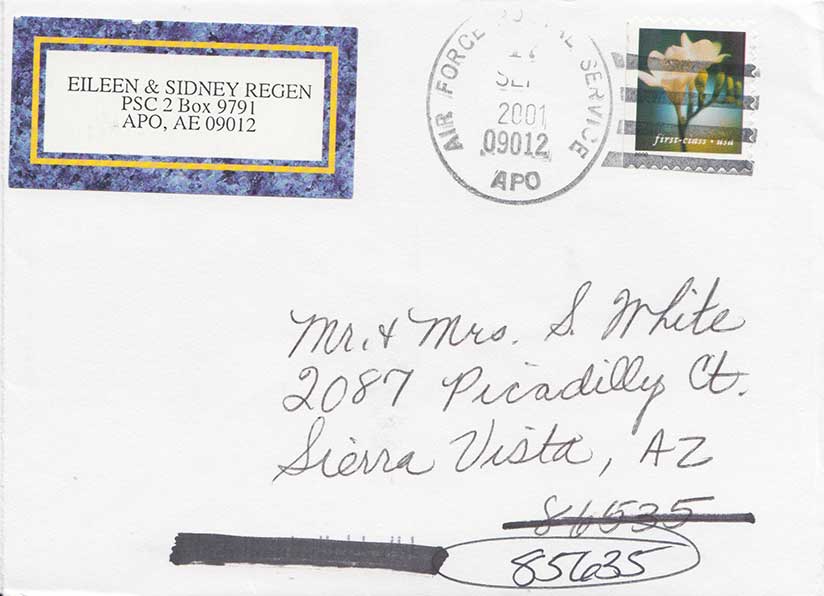 EILEEN & SIDNEY REGEN
PSC 2 Box 9791
APO, AE 09012
AIR FORCE POSTAL SERVICE
17
SEP
2001
09012
APO
first-class • usa
Mr. & Mrs. S. White
2087 Picadilly Ct.
Sierra Vista, AZ
86535
85635